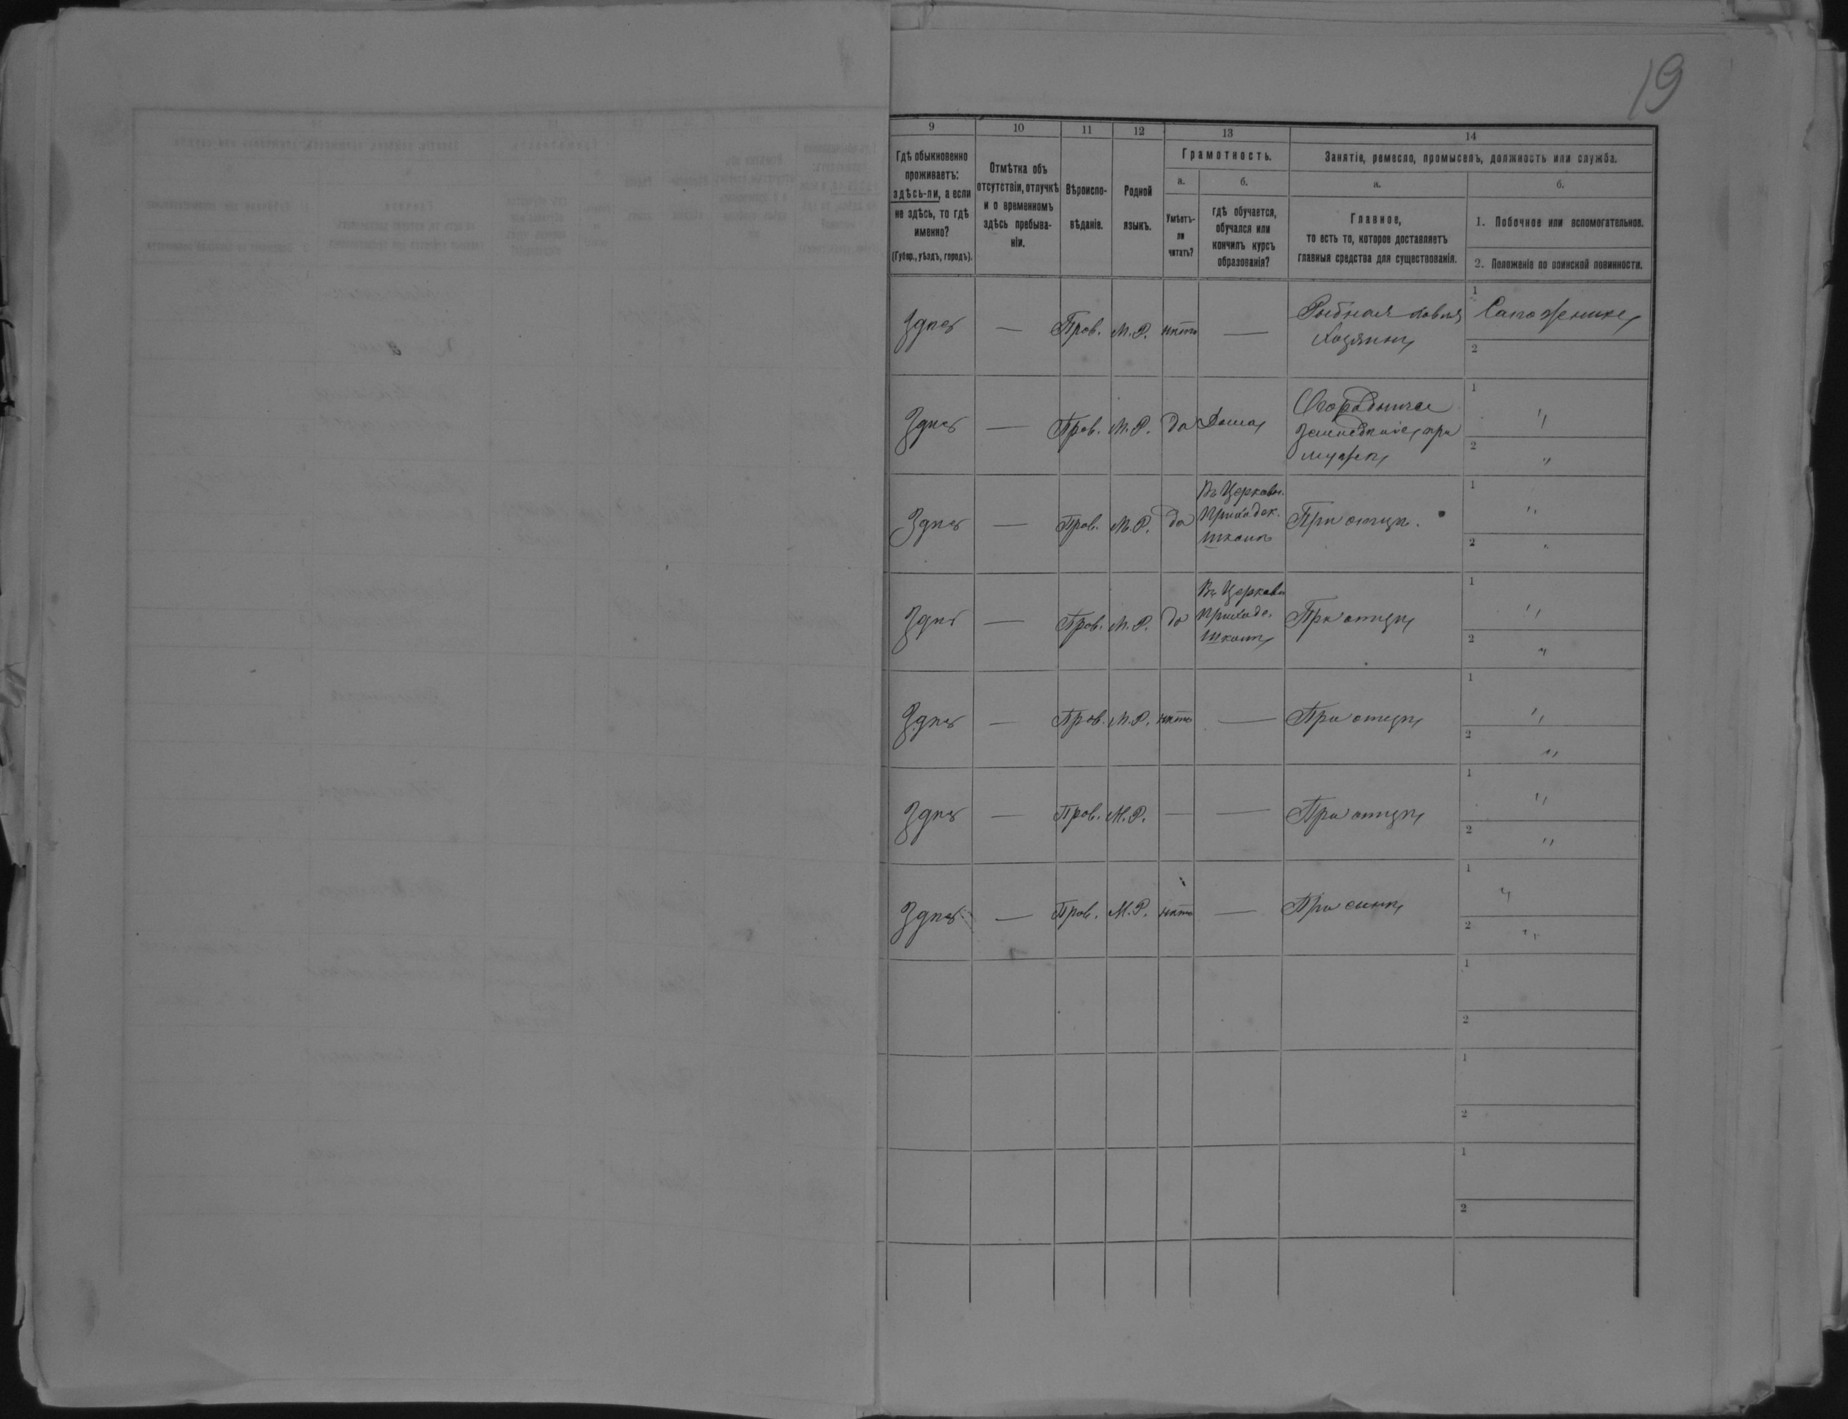 19
9 10 11 12 13 14
Гдѣ обыкновенно
проживаетъ:
здѣсь-ли, а если
не здѣсь, то гдѣ
именно?
(Губер., уѣздъ, городъ).
Отмѣтка объ
отсутствіи, отлучкѣ
и о временномъ
здѣсь пребыва-
ніи.
Вѣроиспо-
вѣданіе.
Родной
языкъ.
Грамотность.
а.
Умѣетъ-
ли
читать?
б.
гдѣ обучается,
обучался или
кончилъ курсъ
образованія?
Занятіе, ремесло, промыселъ, должность или служба.
а.
Главное,
то есть то, которое доставляетъ
главныя средства для существованія.
б.
1. Побочное или вспомогательное.
2. Положеніе по воинской повинности.
Здѣсь — Прав. М.Р. нѣтъ —
Рыбная ловля
Хозяинъ
1 Сапожникъ
2
Здѣсь — Прав. М.Р. да Дома
земледѣліе, при
мужѣ
1 "
2 "
Здѣсь — Прав. М.Р. да
Въ Церковн.
Приходск.
Школѣ
При отцѣ.
1 "
2 "
Здѣсь — Прав. М.Р. да
Въ Церковн
Приходс.
Школѣ
При отцѣ
1 "
2 "
Здѣсь — Прав. М.Р. нѣтъ — При отцѣ
1 "
2 "
Здѣсь — Прав. М.Р. — — При отцѣ
1 "
2 "
Здѣсь — Прав. М.Р. нѣтъ — При сынѣ
1 "
2 "
1
2
1
2
1
2